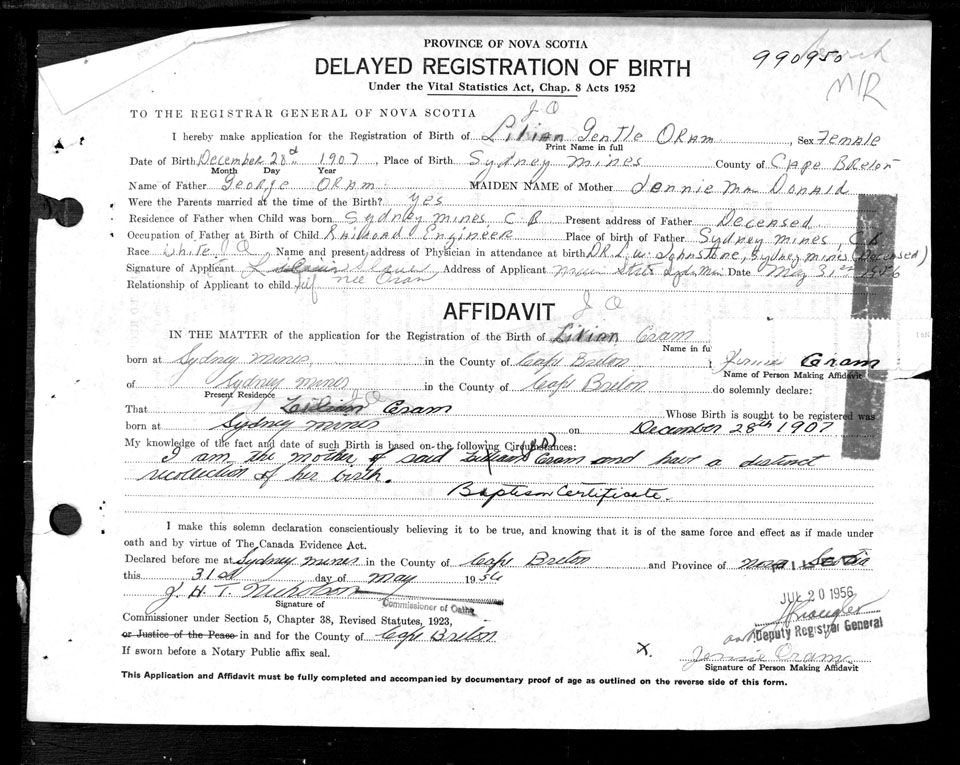 PROVINCE OF NOVA SCOTIA
990950
DELAYED REGISTRATION OF BIRTH
M/R
Under the Vital Statistics Act, Chap. 8 Acts 1952
TO THE REGISTRAR GENERAL OF NOVA SCOTIA J O
I hereby make application for the Registration of Birth of Lilian Gentle ORAM, Sex Female
Print Name in full
Date of Birth December 28th 1907, Place of Birth Sydney mines County of Cape Breton
Month Day Year
Name of Father George ORAM MAIDEN NAME of Mother Jennie Mac Donald
Were the Parents married at the time of the Birth? Yes
Residence of Father when Child was born Sydney mines C.B Present address of Father Deceased
Occupation of Father at Birth of Child Railroad Engineer Place of birth of Father Sydney mines, C.B
Race White J O Name and present address of Physician in attendance at birth DR. L. W. Johnstone, Sydney mines (Deceased)
Signature of Applicant Address of Applicant Main Street Syd. Mines Date May 31st 1956
Relationship of Applicant to child self nee Oram
AFFIDAVIT J O
IN THE MATTER of the application for the Registration of the Birth of Lilian Oram
Name in fu
born at Sydney mines, in the County of Cape Breton I Jennie Oram
Name of Person Making Affidavit
of Sydney mines in the County of Cape Breton do solemnly declare:
Present Residence
That Lilian J O Oram Whose Birth is sought to be registered was
born at Sydney mines on December 28th 1907
My knowledge of the fact and date of such Birth is based on the following Circumstances:
I am the mother of said Lilian Oram and have a distinct
recollection of her birth.
Baptism Certificate.
I make this solemn declaration conscientiously believing it to be true, and knowing that it is of the same force and effect as if made under
oath and by virtue of The Canada Evidence Act.
Declared before me at Sydney mines in the County of Cape Breton and Province of Nova Scotia
this 31st day of May 1956
J. H. T. Nicholson
Signature of Commissioner of Oaths
JUL 20 1956
Commissioner under Section 5, Chapter 38, Revised Statutes, 1923,
Deputy Registrar General
or Justice of the Peace in and for the County of Cape Breton
If sworn before a Notary Public affix seal.
X. Jennie Oram
Signature of Person Making Affidavit
This Application and Affidavit must be fully completed and accompanied by documentary proof of age as outlined on the reverse side of this form.